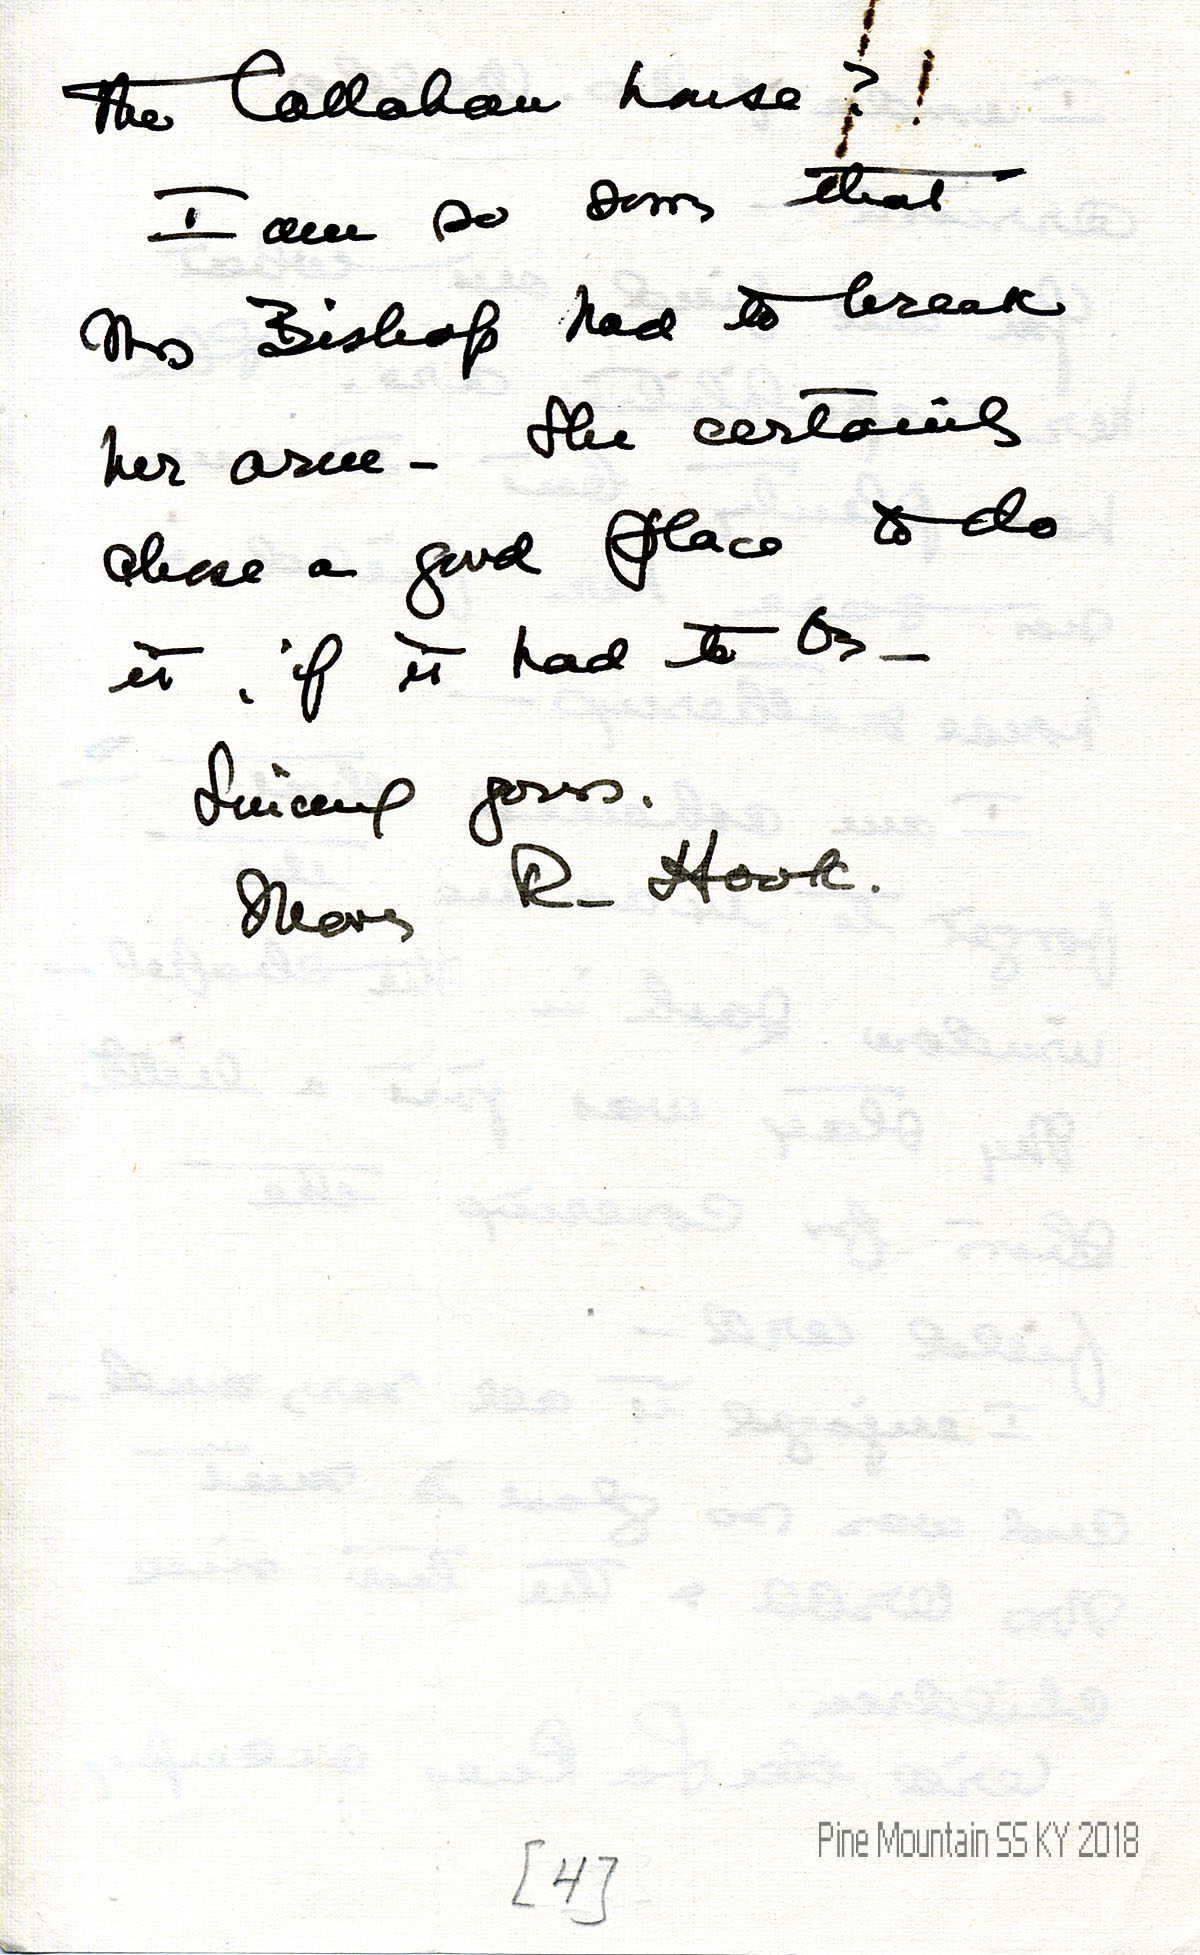 the Callahan house?!
I am so sorry that
Mrs Bishop had to break
her arm – She certainly
chose a good place to do
it, if it had to be –
Sincerely yours.
Mary R– Hook.
Pine Mountain SS KY 2018
[4]